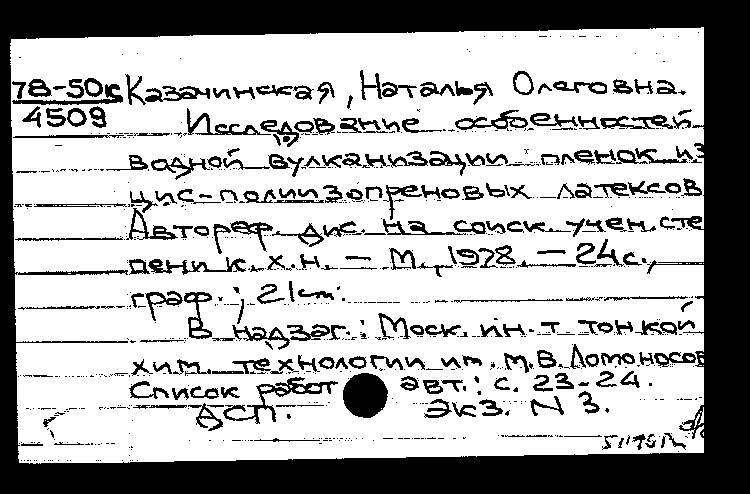 78-50к Казачинская, Наталья Олеговна.
4509 Исследование особенностей
водной вулканизации пленок из
цис-полиизопреновых латексов
Автореф. дис. на соиск. учен. сте
пени к. х. н. — М., 1978. — 24 с.,
граф.; 21 см.
В надзаг.: Моск. ин-т тонкой
хим. технологии им. М. В. Ломоносов
Список работ авт.: с. 23-24.
ДСП. Экз. N 3.